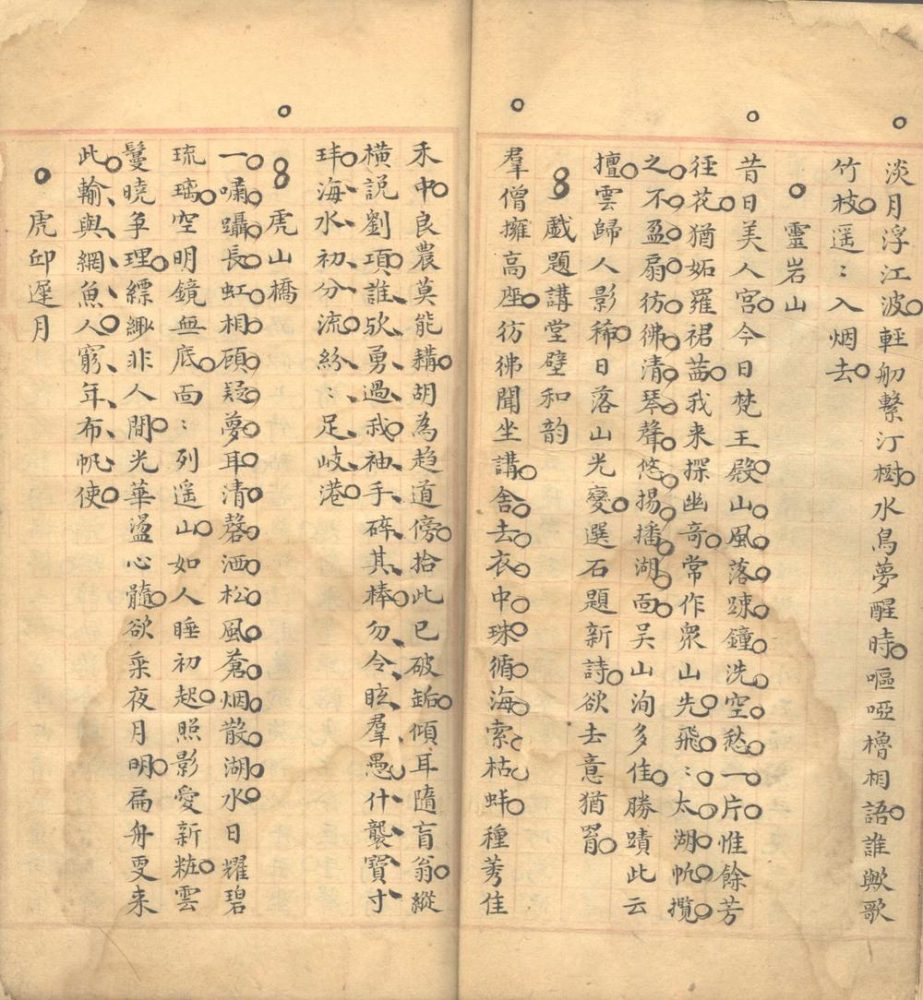 淡月浮江波輕舠繫汀樹水鳥夢醒時嘔啞櫓相語誰歟歌
竹枝遥〻入烟去
靈岩山
昔日美人宮今日梵王殿山風落疎鐘洗空愁一片惟餘芳
徑花猶妬羅裙茜我来探幽奇常作衆山先飛〻太湖帆攬
之不盈扇彷彿清琴聲悠揚播湖面吴山洵多佳勝蹟此云
擅雲歸人影稀日落山光變選石題新詩欲去意猶罥
戲題講堂壁和韵
羣僧擁高座彷彿聞坐講舍去衣中珠循海索枯蚌種莠佳
禾中良農莫能耩胡為趋道傍拾此已破缿傾耳隨盲翁縱
横説劉項誰欤勇過我袖手碎其棒勿令眩羣愚什襲寳寸
玤海水初分流紛〻足岐港
虎山橋
一嘯躡長虹相顾疑夢耳清磬洒松風蒼烟散湖水日耀碧
琉璃空明鏡無底面〻列遥山如人睡初起照影愛新粧雲
鬘曉争理縹緲非人間光華盪心髓欲乘夜月明扁舟更来
此輸與網魚人窮年布帆使
虎邱遲月